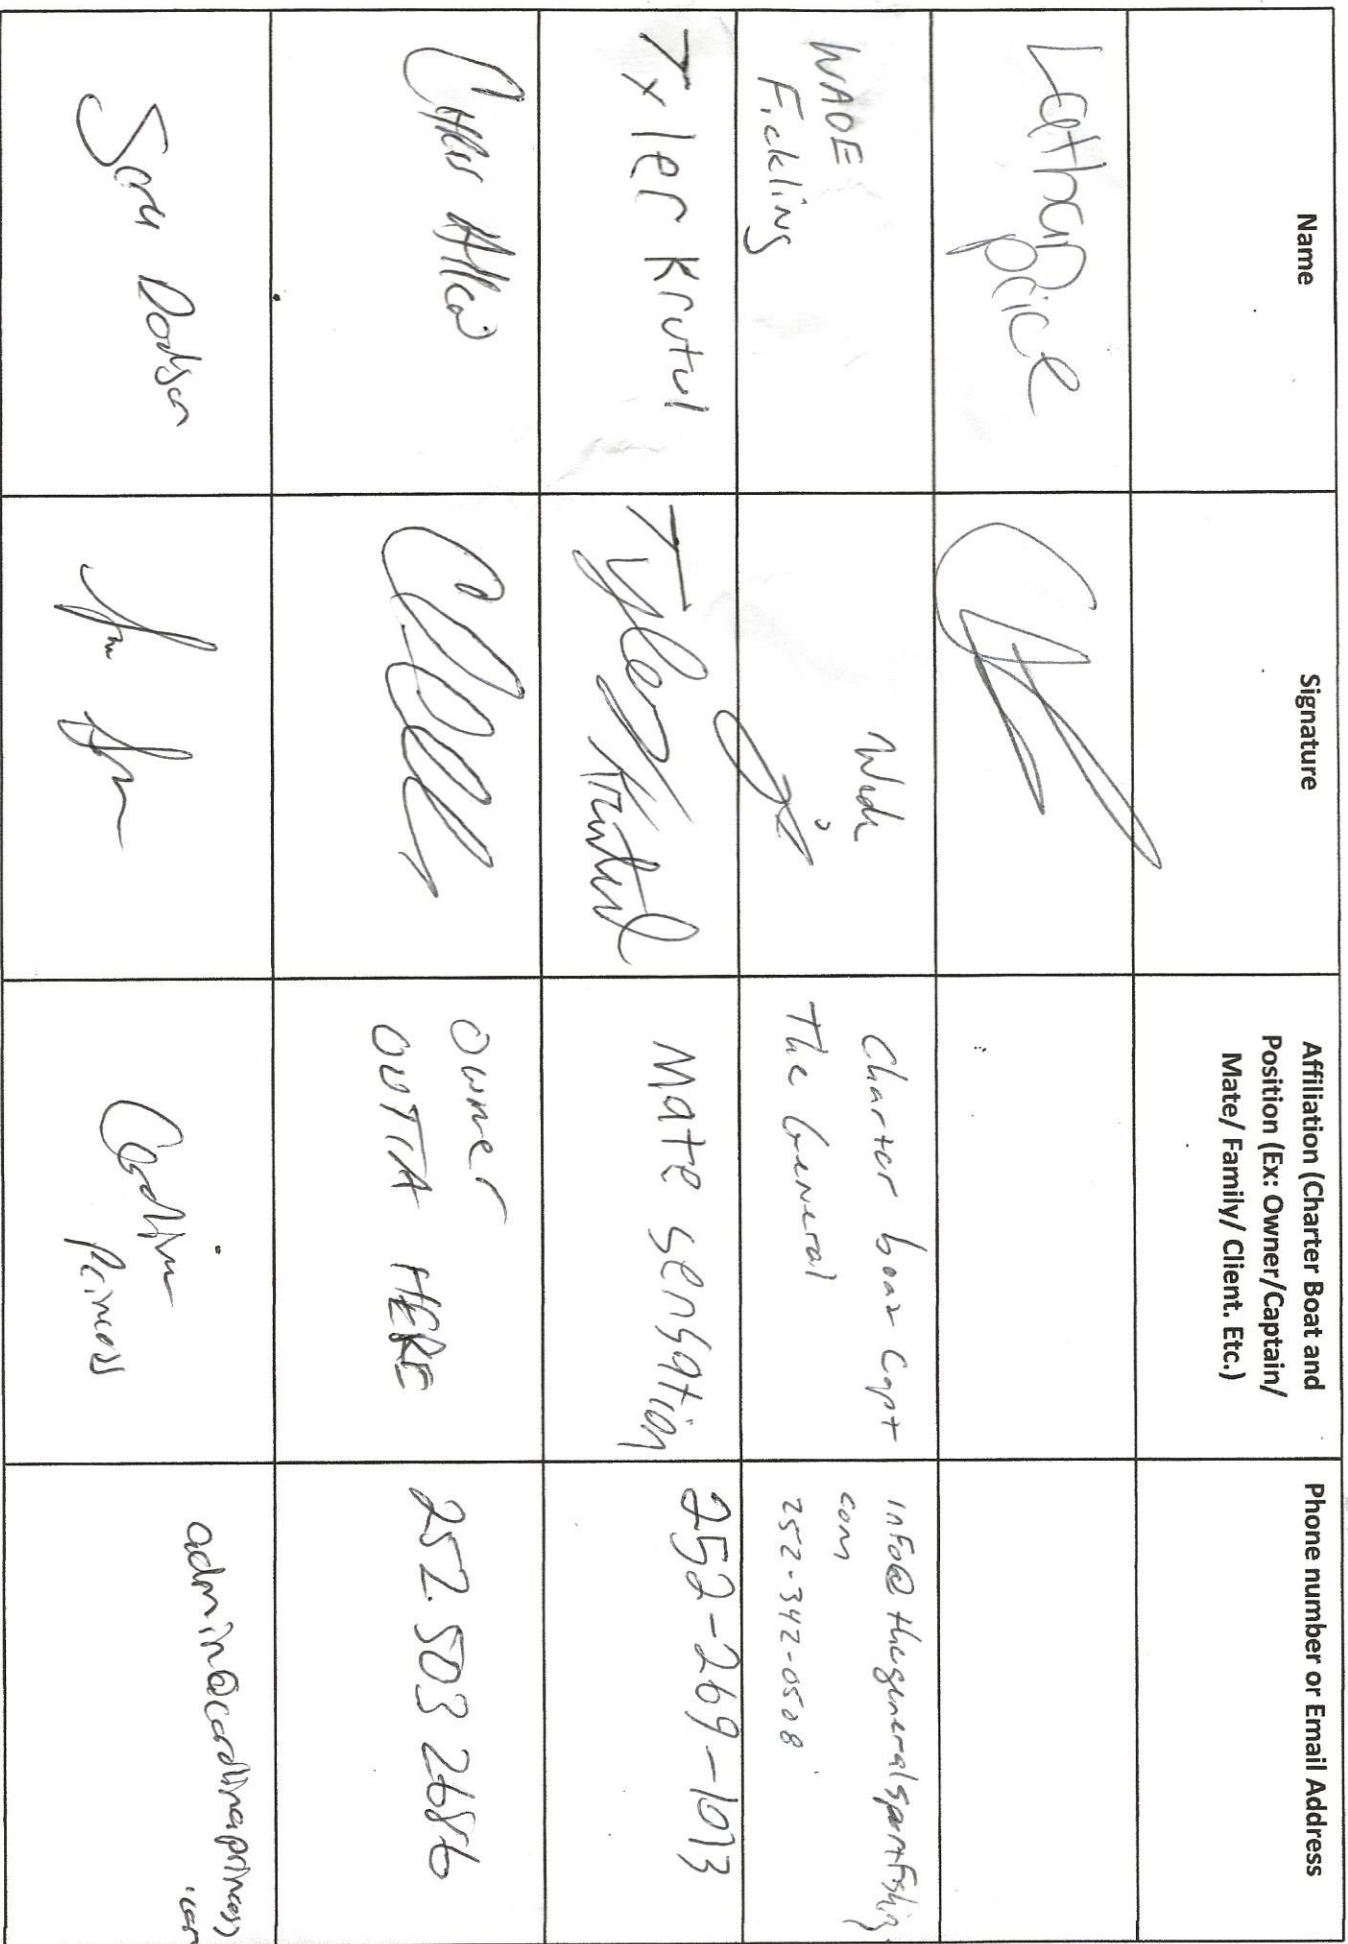 Name
Signature
Affiliation (Charter Boat and
Position (Ex: Owner/Captain/
Mate/ Family/ Client. Etc.)
Phone number or Email Address
Price
WADE
Fickling
Wade
Charter boat Capt
The General
info@thegeneralsportfishing
com
252-342-0508
Tyler Krutul
Tyler Krutul
Mate Sensation
252-269-1013
Chris Allen
Owner
OUTTA HERE
252.503 2686
Dodson
Carolina
Princess
admin@carolinaprincess
.com